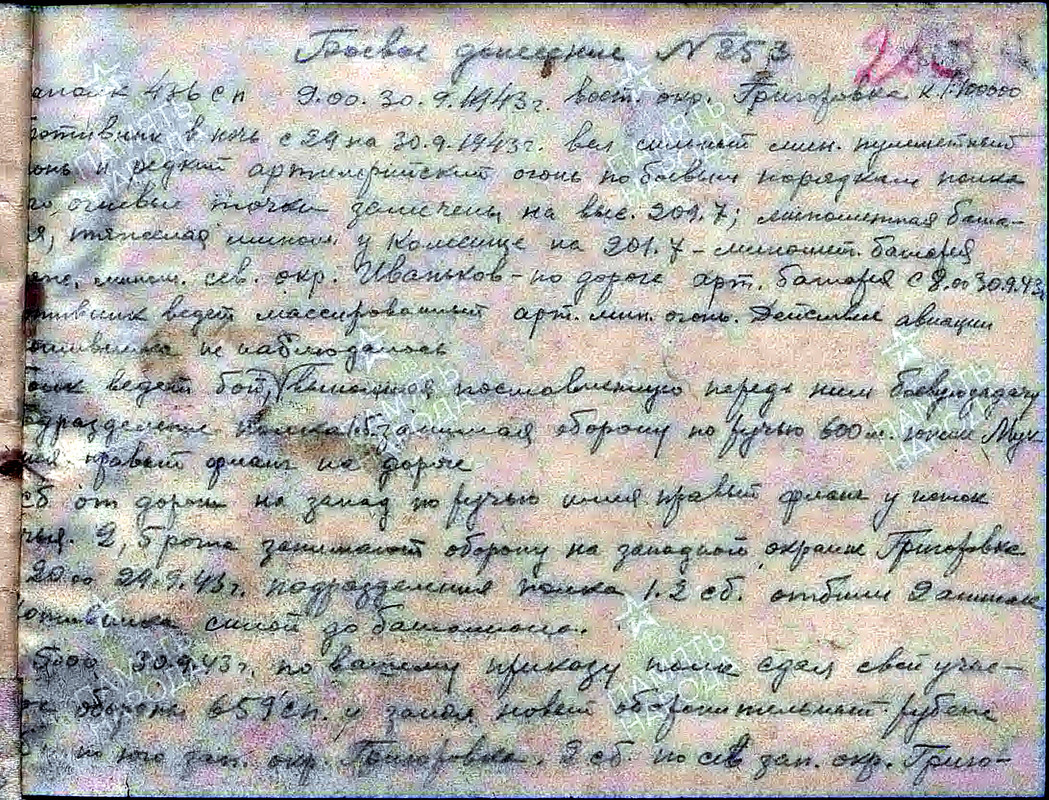 Боевое донесение № 253
476 сп 9.00. 30.9.1943г. вост. окр. Григоровка к 1:100000
в ночь с 29 на 30.9.1943г. вел сильный мин. пулеметный
и редкий артилерийский огонь по боевым порядкам полка
огневые точки замечены на выс. 209.7; минометная бата-
тяжелая мином. у на 201.7 - миномет. батарея
сев. окр. Иваньков - по дороге арт. батарея с 8.00 30.9.43г
ведет массированный арт. мин. огонь. Действие авиации
не наблюдалось
ведет бой, выполняя поставленную перед ним боевую задачу
полка 1 сб. занимая оборону по ручью 600 м. южн. Мук
правый фланг на дороге
сб от дороги на запад по ручью имея правый фланг у
2, 5 рота занимают оборону на западной окраине Григоровка
20.00 29.9.43г. подразделения полка 1. 2 сб. отбили 2 атаки
силой до батальона.
30.9.43г. по вашему приказу полк сдал свой учас-
обороны 659 сп. и занял новый оборонительный рубеж
по юго зап. окр. Григоровка. 2 сб. по сев зап. окр. Григо-